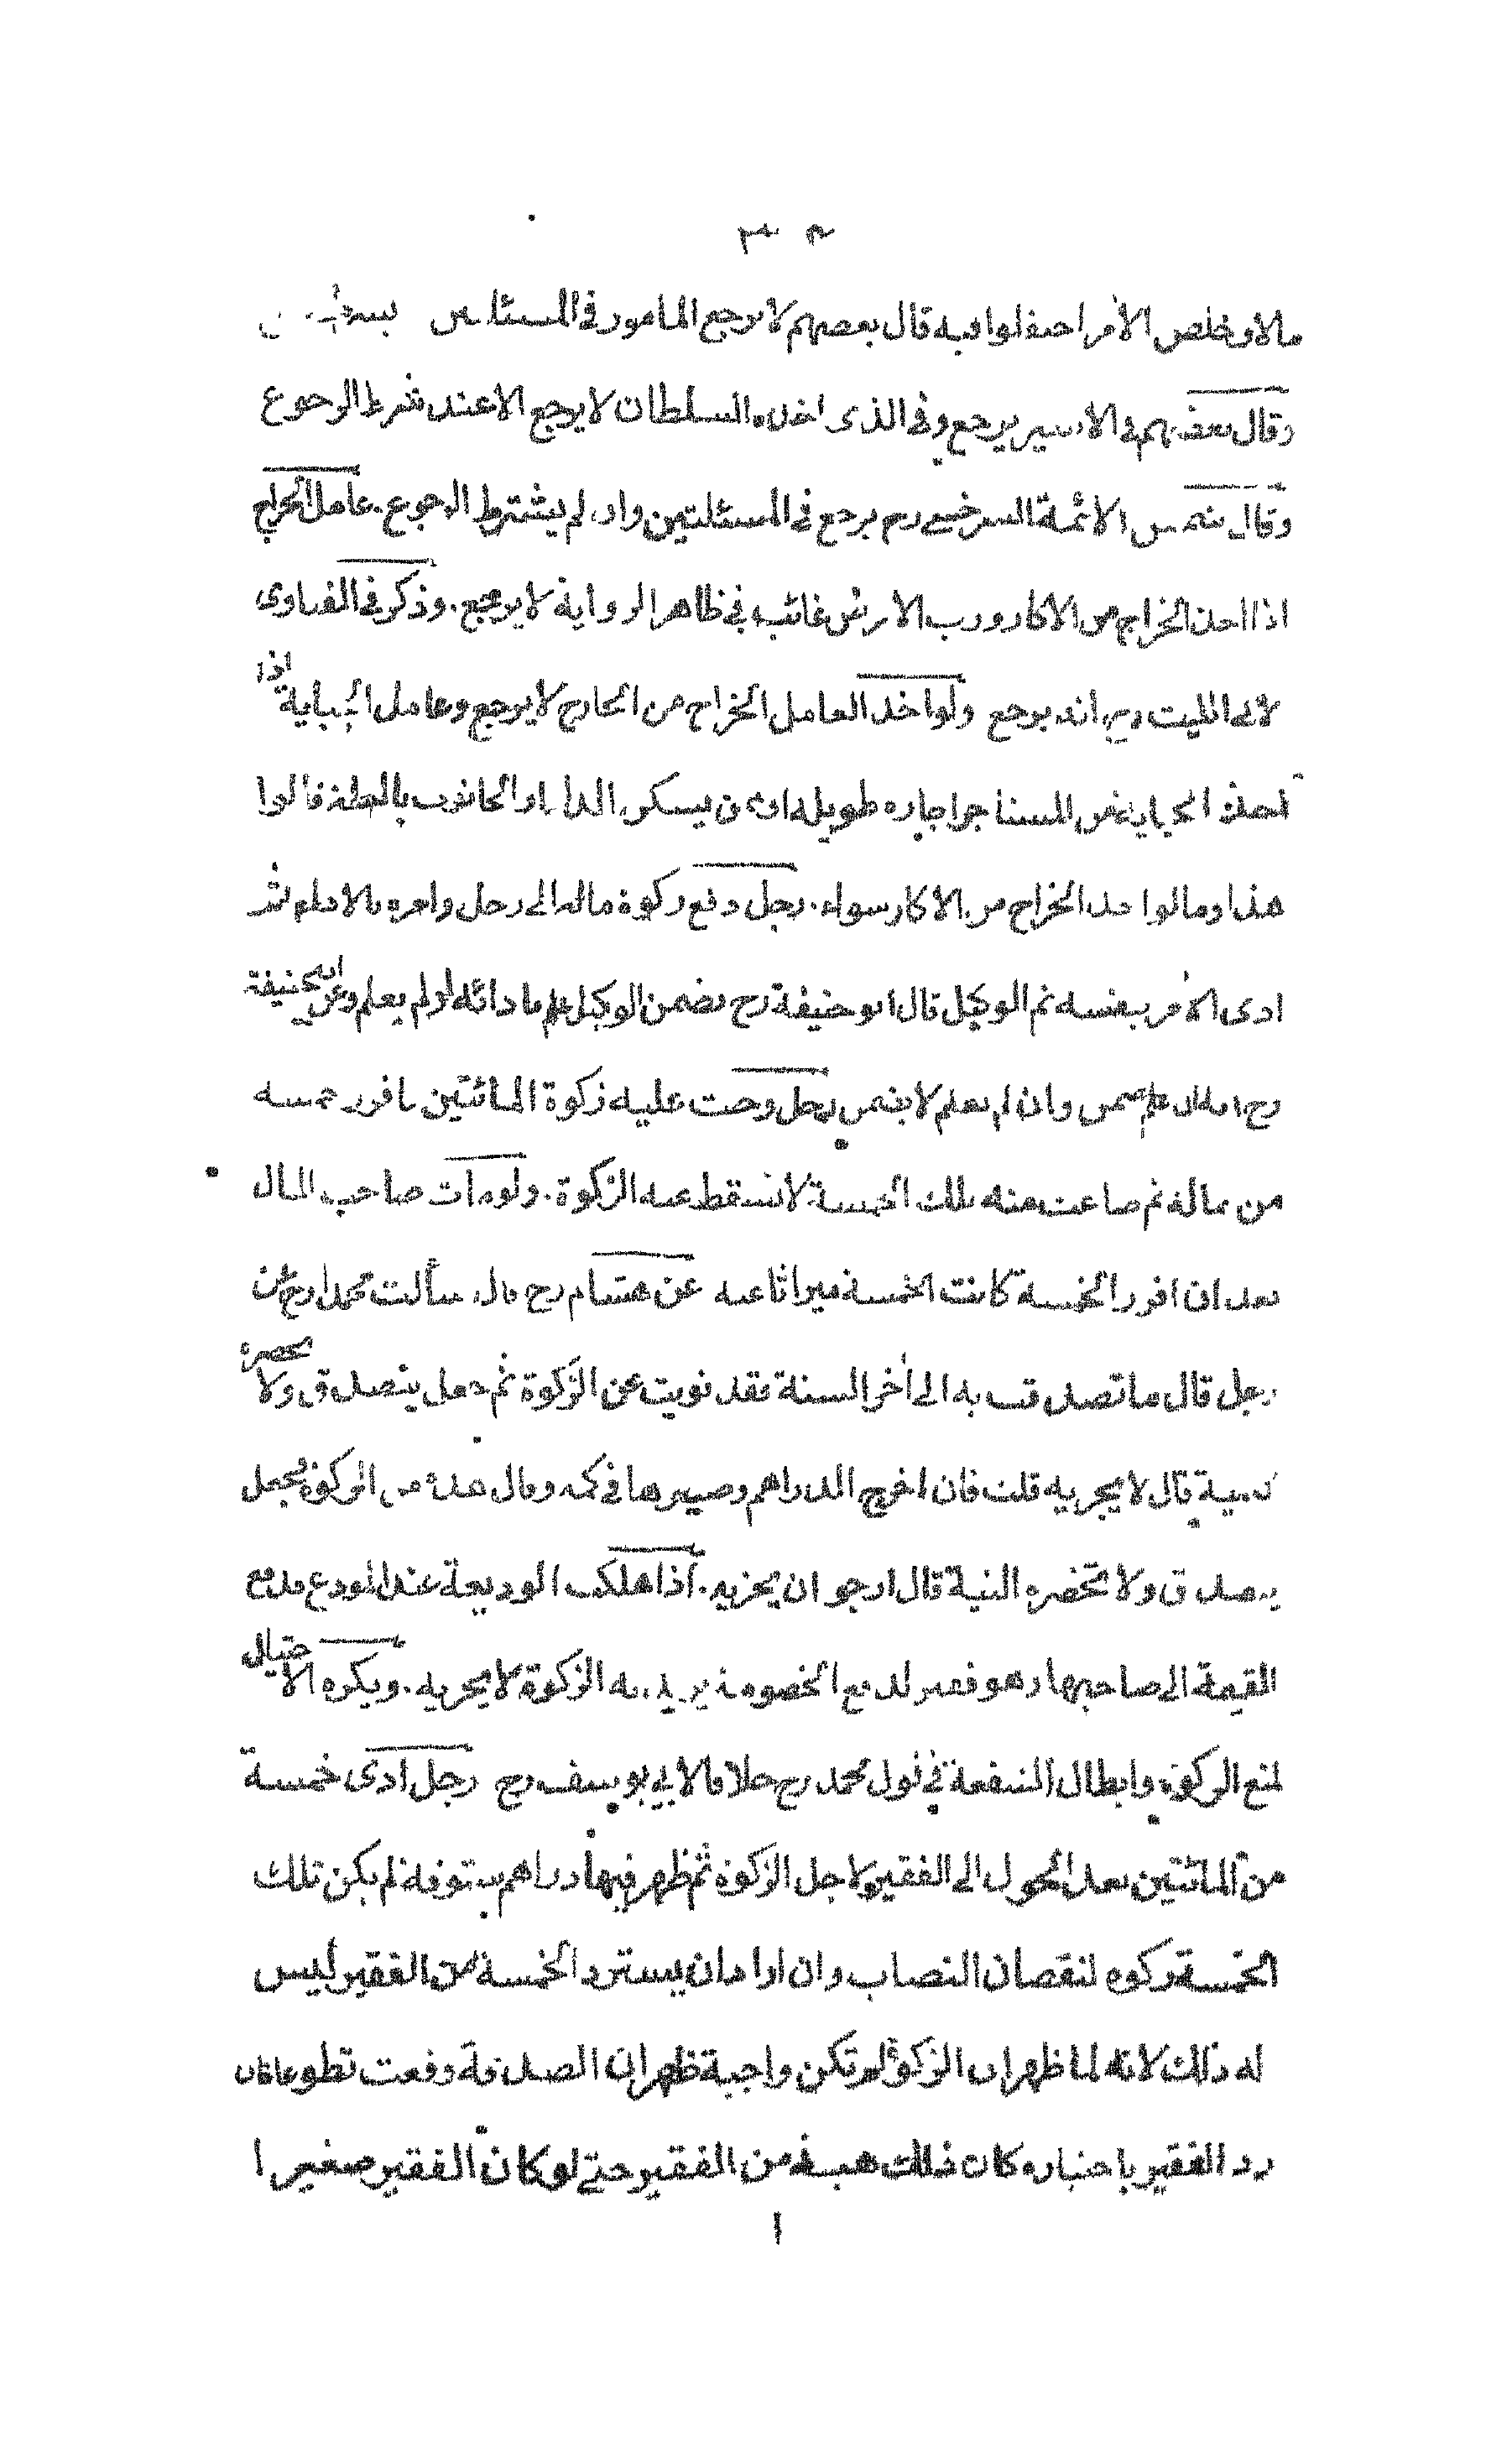 مالا وخلص الأمر اختلفوا فيه قال بعضهم لا يرجع المامور فى المسئلتين
وقال بعضهم فى الاسير يرجع وفى الذى اخذه السلطان لا يرجع الا عند شرط الرجوع
وقال شمس الائمة السرخسى رح يرجع فى المسئلتين وان لم يشترط الرجوع. عامل الخراج
اذا اخذ الخراج من الاكار ورب الارض غائب فى ظاهر الرواية لا يرجع. وذكر فى الفتاوى
لابى الليث رح انه يرجع ولو اخذ العامل الخراج من الجار لا يرجع وعامل الجباية اذا
اخذ الجباية من المستاجر اجارة طويلة او من يسكن الدار والحانوت بالغلة قالوا
هذا وما لو اخذ الخراج من الاكار سواء. رجل دفع زكوة ماله الى رجل وامره بالاداء ثم
ادى الأمر بنفسه ثم الوكيل قال ابو حنيفة رح يضمن الوكيل علم بادائه او لم يعلم وعن ابى حنيفة
رح ان علم ضمن وان لم يعلم لا يضمن رجل وجبت عليه زكوة المائتين فافرز خمسة
من ماله ثم ضاعت منه تلك الخمسة لا تسقط عنه الزكوة. ولو مات صاحب المال
بعد ان افرز الخمسة كانت الخمسة ميراثا عنه عن هشام رح قال سألت محمدا رح عن
رجل قال ما تصدقت به الى أخر السنة فقد نويت عن الزكوة ثم جعل يتصدق ولا تحضره
النية قال لا يجزيه قلت فان اخرج الدراهم وصيرها فى كمه وقال هذه من الزكوة فجعل
يتصدق ولا تحضره النية قال ارجو ان يجزيه. اذا هلكت الوديعة عند المودع فدفع
القيمة الى صاحبها وهو فقير لدفع الخصومة يريد به الزكوة لا يجزيه. ويكره الاحتيال
لمنع الزكوة وابطال الشفعة فى قول محمد رح خلافا لابى يوسف رح رجل ادى خمسة
من المائتين بعد الحول الى الفقير لاجل الزكوة ثم ظهر فيها دراهم ستوقة لم يكن تلك
الخمسة زكوة لنقصان النصاب وان اراد ان يسترد الخمسة من الفقير ليس
له ذلك لانه لما ظهر ان الزكوة لم تكن واجبة ظهر ان الصدقة وقعت تطوعا فان
رد الفقير باختياره كان ذلك هبة من الفقير حتى لو كان الفقير صغيرا